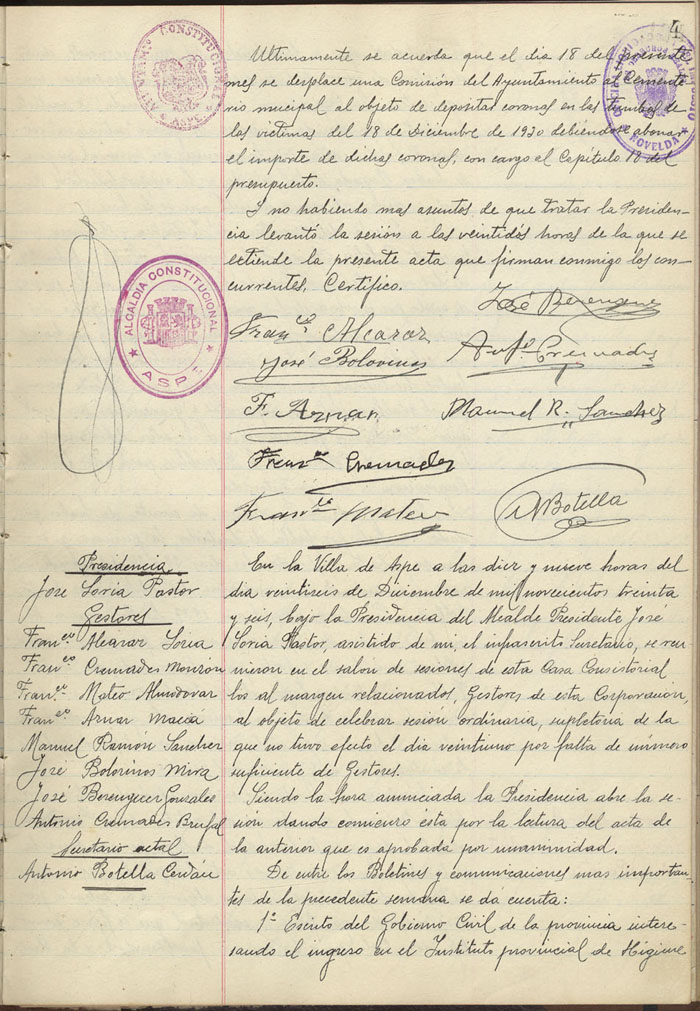 4
AYUNTAMTO CONSTITUCIONAL
ASPE
NOVELDA
Ultimamente se acuerda que el dia 18 del presente
mes se desplace una Comisión del Ayuntamiento al Cemente
rio mucipal al objeto de depositar coronas en las tumbas de
las victimas del 18 de Diciembre de 1930 debiendose abonar
el importe de dichas coronas, con cargo al Capítulo 18 del
presupuesto.
Y no habiendo mas asuntos de que tratar la Presiden-
cia levantó la sesión a las veintidós horas de la que se
extiende la presente acta que firman conmigo los con-
currentes, Certifico.
ALCALDIA CONSTITUCIONAL
ASPE
José Berenguer
Franco Alcaraz
José Bolorinos
Antº Cremades
F. Aznar
Manuel R. Sanchez
Franco Cremades
Franco Mateo
A Botella
Presidencia
Jose Soria Pastor
Gestores
Franco Alcaraz Soria
Franco Cremades Monzón
Franco Mateo Almodovar
Franco Aznar Maciá
Manuel Ramón Sanchez
José Bolorinos Mira
José Berenguer Gonzales
Antonio Cremades Brufal
Secretario actal
Antonio Botella Cerdán
En la Villa de Aspe a las diez y nueve horas del
dia veintiseis de Diciembre de mil novecientos treinta
y seis, bajo la Presidencia del Alcalde Presidente José
Soria Pastor, asistido de mi, el infrascrito Secretario, se reu
nieron en el salon de sesiones de esta Casa Consistorial
los al margen relacionados, Gestores de esta Corporación,
al objeto de celebrar sesión ordinaria, supletoria de la
que no tuvo efecto el dia veintiuno por falta de número
suficiente de Gestores.
Siendo la hora anunciada la Presidencia abre la se-
sión dando comienzo esta por la lectura del acta de
la anterior que es aprobada por unanimidad.
De entre los Boletines y comunicaciones mas importan
tes de la precedente semana se dá cuenta:
1º Escrito del Gobierno Civil de la provincia intere-
sando el ingreso en el Instituto provincial de Higiene